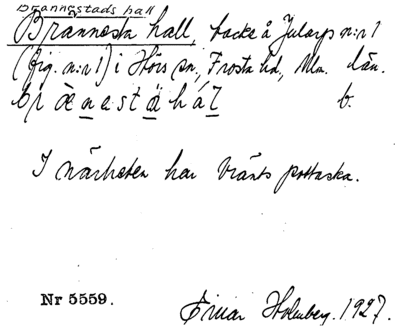 Brännestads hall
Brännesta hall, backe å Jularps n:r 1
(fig. n:r 1) i Hörs sn, Frosta hd, Mlm. län.
br ä̀ n e s t ä h á l b.
I närheten har bränts pottaska.
Nr 5559.
Einar Holmberg. 1927.